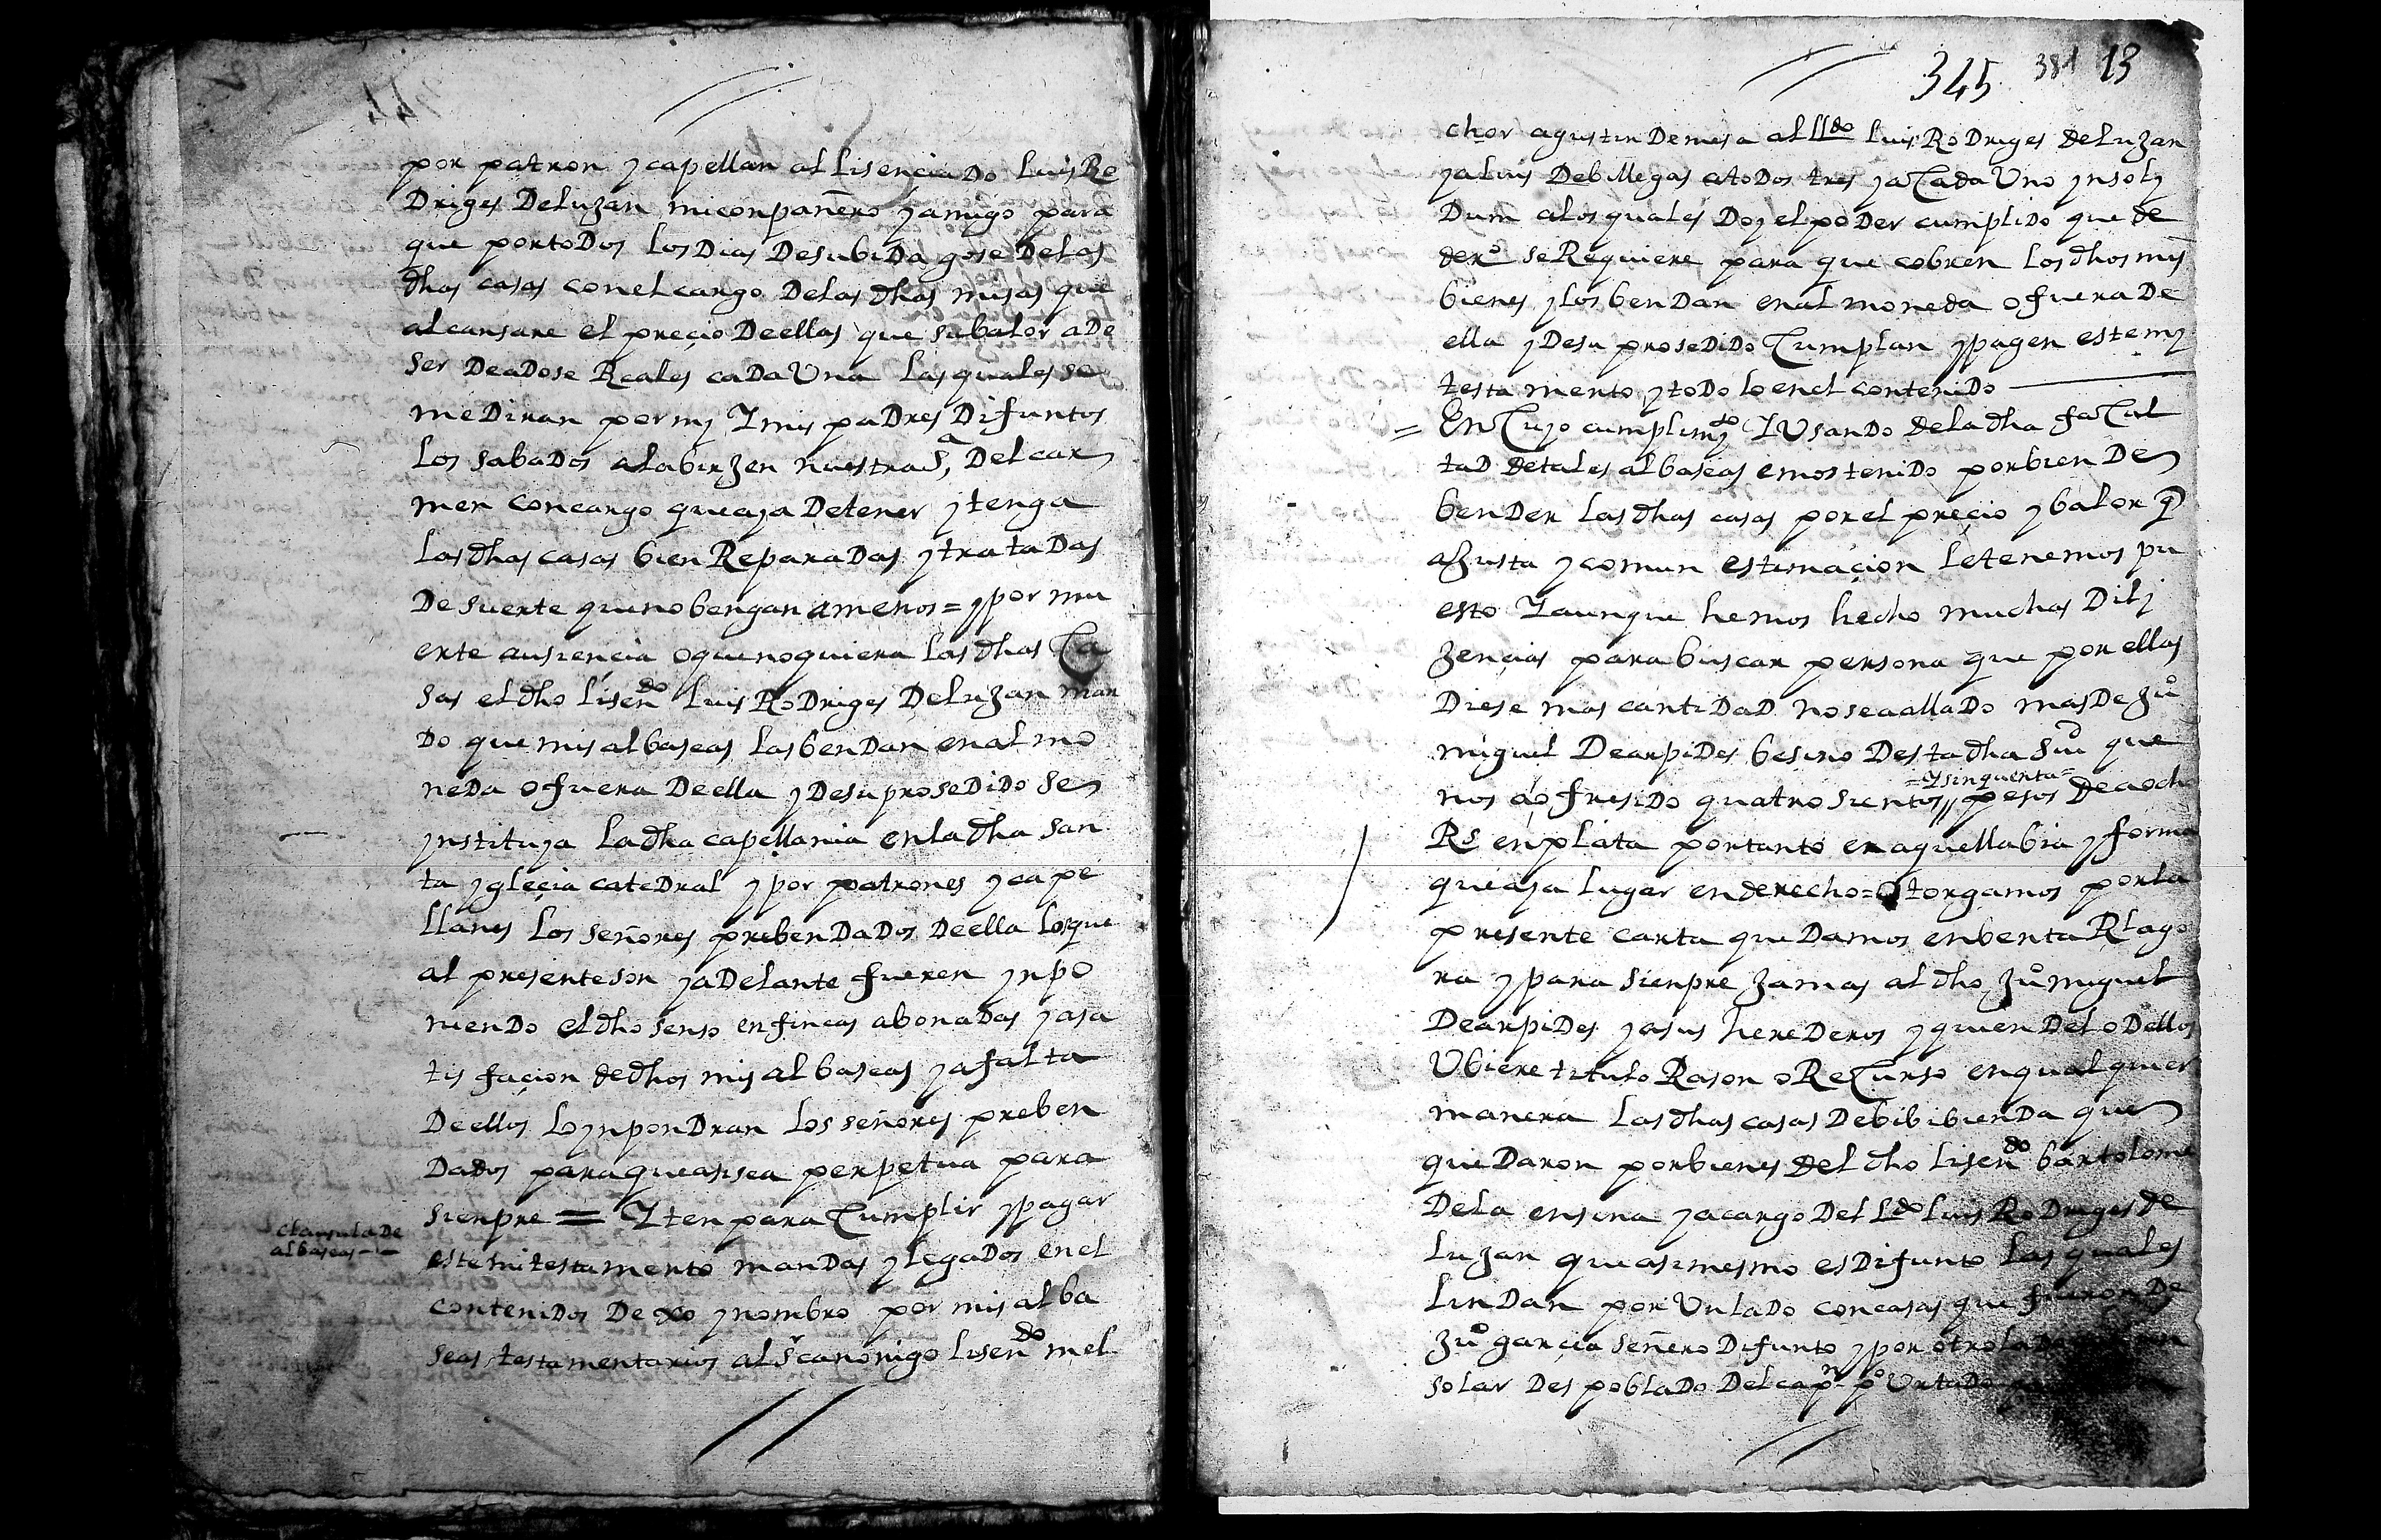 por patron y capellan al lisençiado luis Ro
Driges De luzan mi conpañero y amigo para
que por toDos los Dias De su biDa gose De las
dhas casas con el cargo De las dhas misas que
alcansare el preçio De ellas que su balor a De
ser De a Dose Reales caDa Una las quales se
me Diran por my Y mis paDres Difuntos
los sabaDos a la birzen nuestra Sª, Del car
men con cargo que aya De tener y tenga
las dhas casas bien ReparaDas y trataDas
De suerte que no bengan a menos = y por mu
erte ausiencia o que no quiera las dhas Ca
sas el dho lisendo luis RoDriges De luzan man
Do que mis albaseas las benDan en almo
neDa o fuera De ella y De su proseDiDo se
ynstituya la dha capellania en la dha san
ta ygleçia cateDral y por patrones y cape
llanes los señores prebenDaDos De ella los que
al presente son y aDelante fueren ynpo
nienDo el dho senso en fincas abonaDas y a sa
tisfaçion de dhos mis albaseas y a falta
De ellos lo ynponDran los señores preben
DaDos para que asi sea perpetua para
sienpre = Yten para Cumplir y pagar
este mi testamento manDas y legaDos en el
conteniDos Dexo y nombro por mis alba
seas testamentarios al Sr canonigo lisendo mel
clausula De
albaseas
345 381 13
chor agustin De mesa al lldo luis RoDriges de luzan
y a luis De billegas a toDos tres y a CaDa Uno ynsoly
Dum a los quales Doy el poDer cumpliDo que de
dero se Requiere para que cobren los dhos mis
bienes y los benDan en almoneda o fuera De
ella y De su proseDiDo Cumplan y pagen este my
testamento y toDo lo en el conteniDo
= En Cuyo cumplimyto Y UsanDo de la dha faCul
taD de tales albaseas emos teniDo por bien De
benDer las dhas casas por el preçio y balor q
a Justa y comun estimaçion le tenemos pu
esto Y aunque hemos hecho muchas Dily
zençias para buscar persona que por ellas
Diese mas cantiDaD no se a allaDo mas De Juo
miguel De arpiDes besino Desta dha siu que
nos a ofresiDo quatrosientos =Y sinquenta= pesos De a ocho
Rs en plata por tanto en aquella bia y forma
que aya lugar en derecho = Otorgamos por la
presente carta que Damos en benta Rl ago
ra y para sienpre Jamas al dho Juo miguel
De arpiDes y a sus hereDeros y quien Del o Dellos
Ubiere titulo Rason o ReCurso en qualquier
manera las dhas casas De bibibienDa que
queDaron por bienes del dho lisendo bartolome
De la ensina y a cargo Del Ldo luis RoDriges de
luzan que asimesmo es Difunto las quales
linDan por Un laDo con casas que fueron De
Juo garçia señero Difunto y por otro
solar DespoblaDo Del capn po UrtaDo